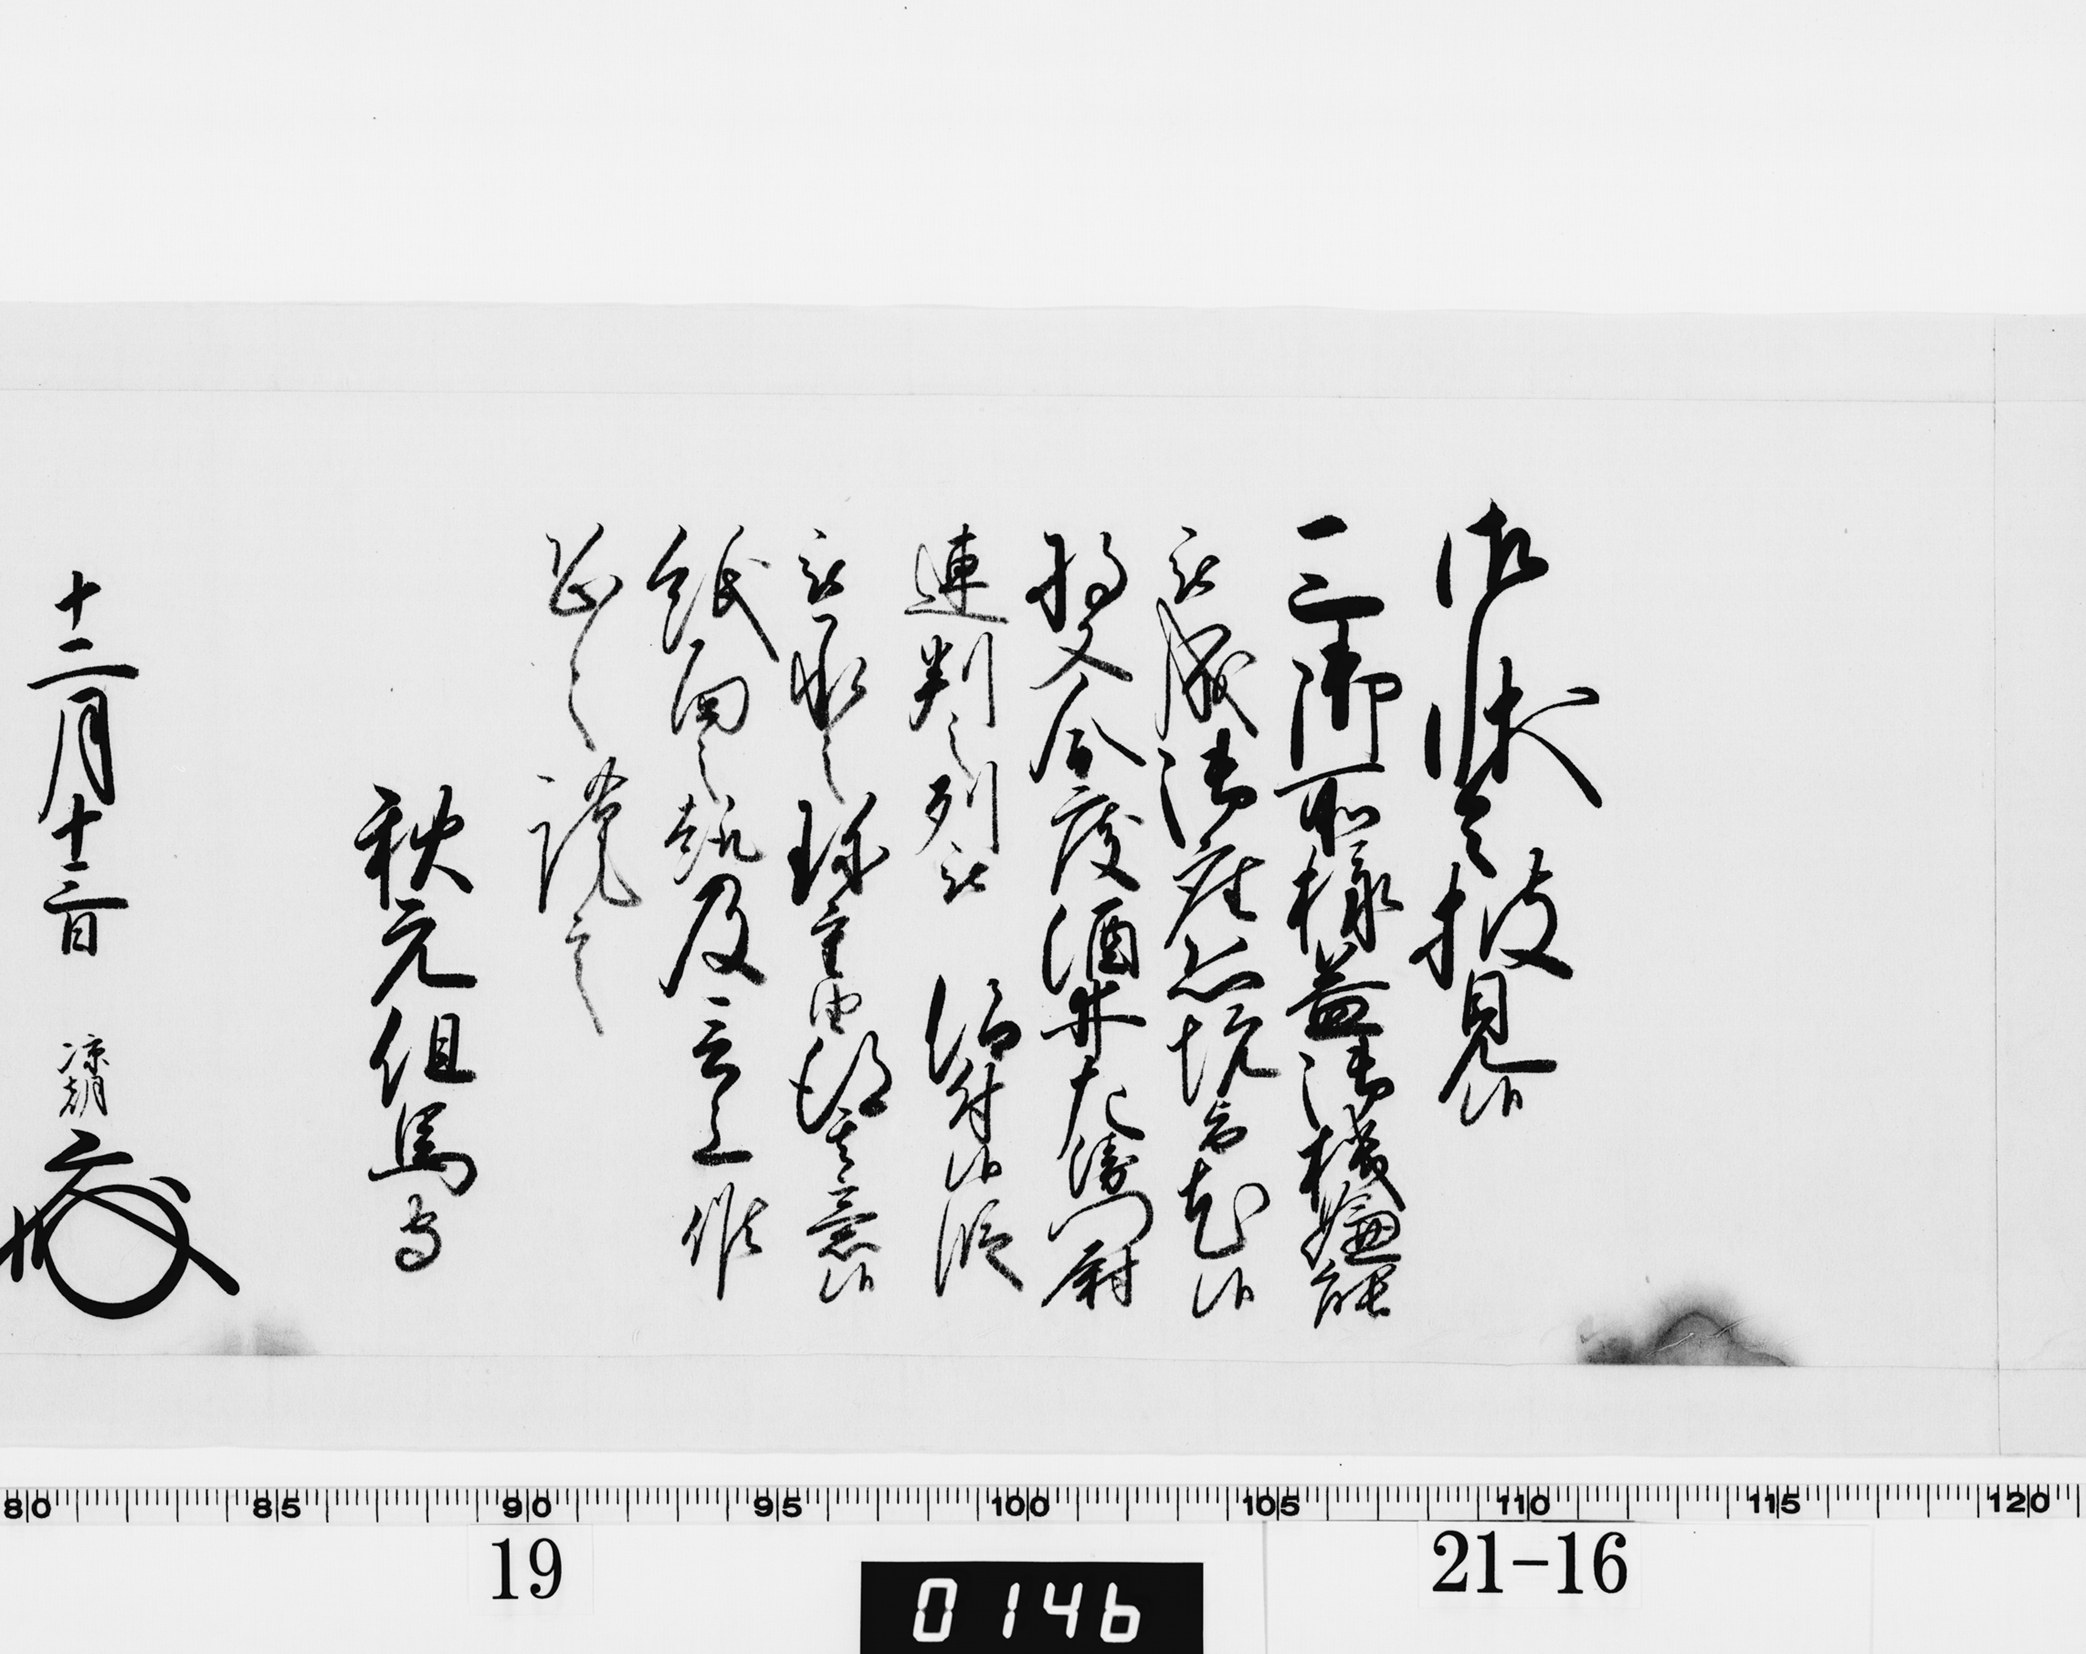 御状令披見候
三御所様益御機嫌能
被成御座恐悦旨尤候
将又今度酒井左衛門尉
連判之列被 仰付候段
被承之珍重由得其意候
紙面之趣及言上候
恐々謹言
秋元但馬守
十二月十三日 凉朝
80 85 90 95 100 105 110 115 120
19
0146
21-16